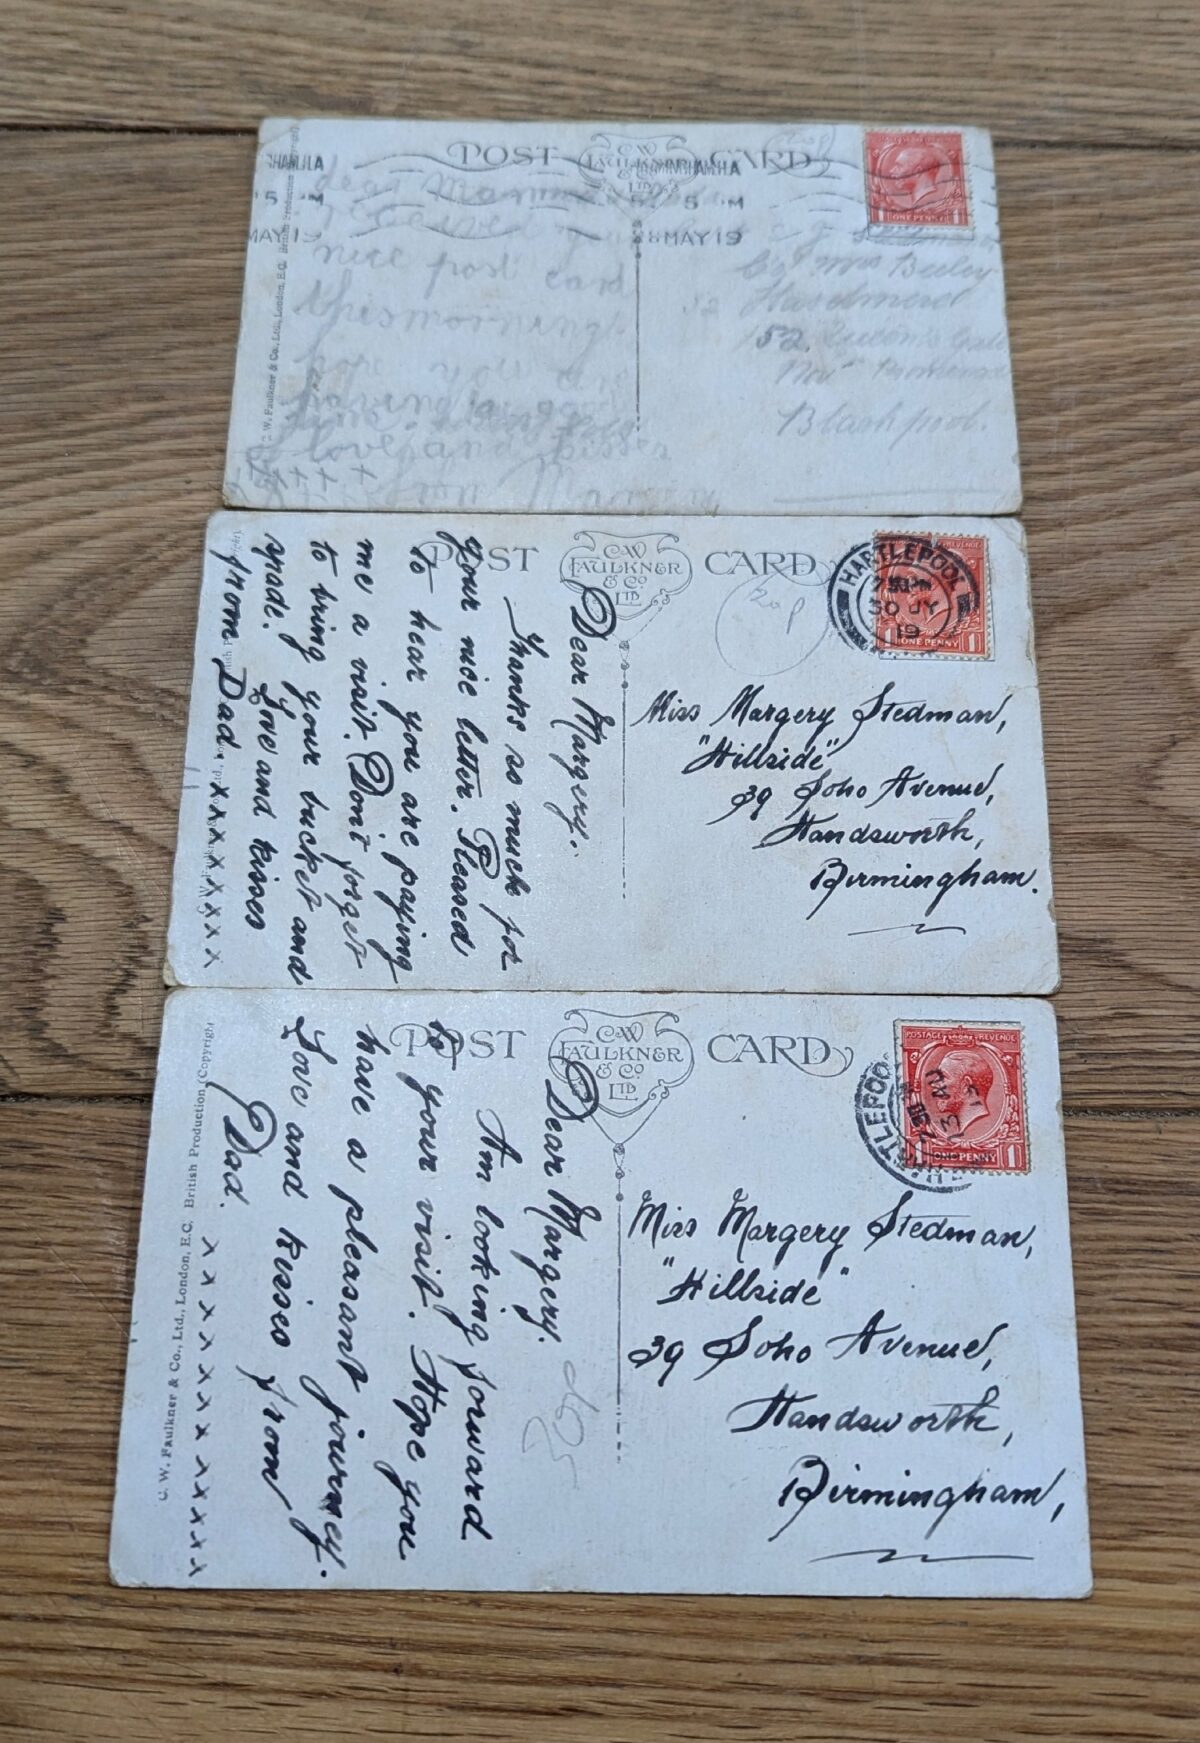 POST CARD
C.W. FAULKNER & Co. LTD
8 MAY 19
5 PM
Dear Mamma
nice post card
this morning
hope you are
having a good
love and kisses
from
Mrs
152
Blackpool.
C. W. Faulkner & Co., Ltd., London, E.C. British Production
POST CARD
C.W. FAULKNER & Co. LTD
HARTLEPOOL
30 JY
19
POSTAGE REVENUE
1 ONE PENNY 1
20p
Dear Margery.
Thanks so much for
your nice letter. Pleased
to hear you are paying
me a visit. Don't forget
to bring your bucket and
spade. Love and kisses
from Dad. xxxxxxxxx
Miss Margery Stedman,
"Hillside"
39 Soho Avenue,
Handsworth,
Birmingham.
POST CARD
C.W. FAULKNER & Co. LTD
HARTLEPOOL
7.30 PM
13 AU
19
POSTAGE REVENUE
1 ONE PENNY 1
20p
Dear Margery.
Am looking forward
to your visit. Hope you
have a pleasant journey.
Love and kisses from
Dad. xxxxxxxxxxx
Miss Margery Stedman,
"Hillside"
39 Soho Avenue,
Handsworth,
Birmingham,
C. W. Faulkner & Co., Ltd., London, E.C. British Production (Copyright